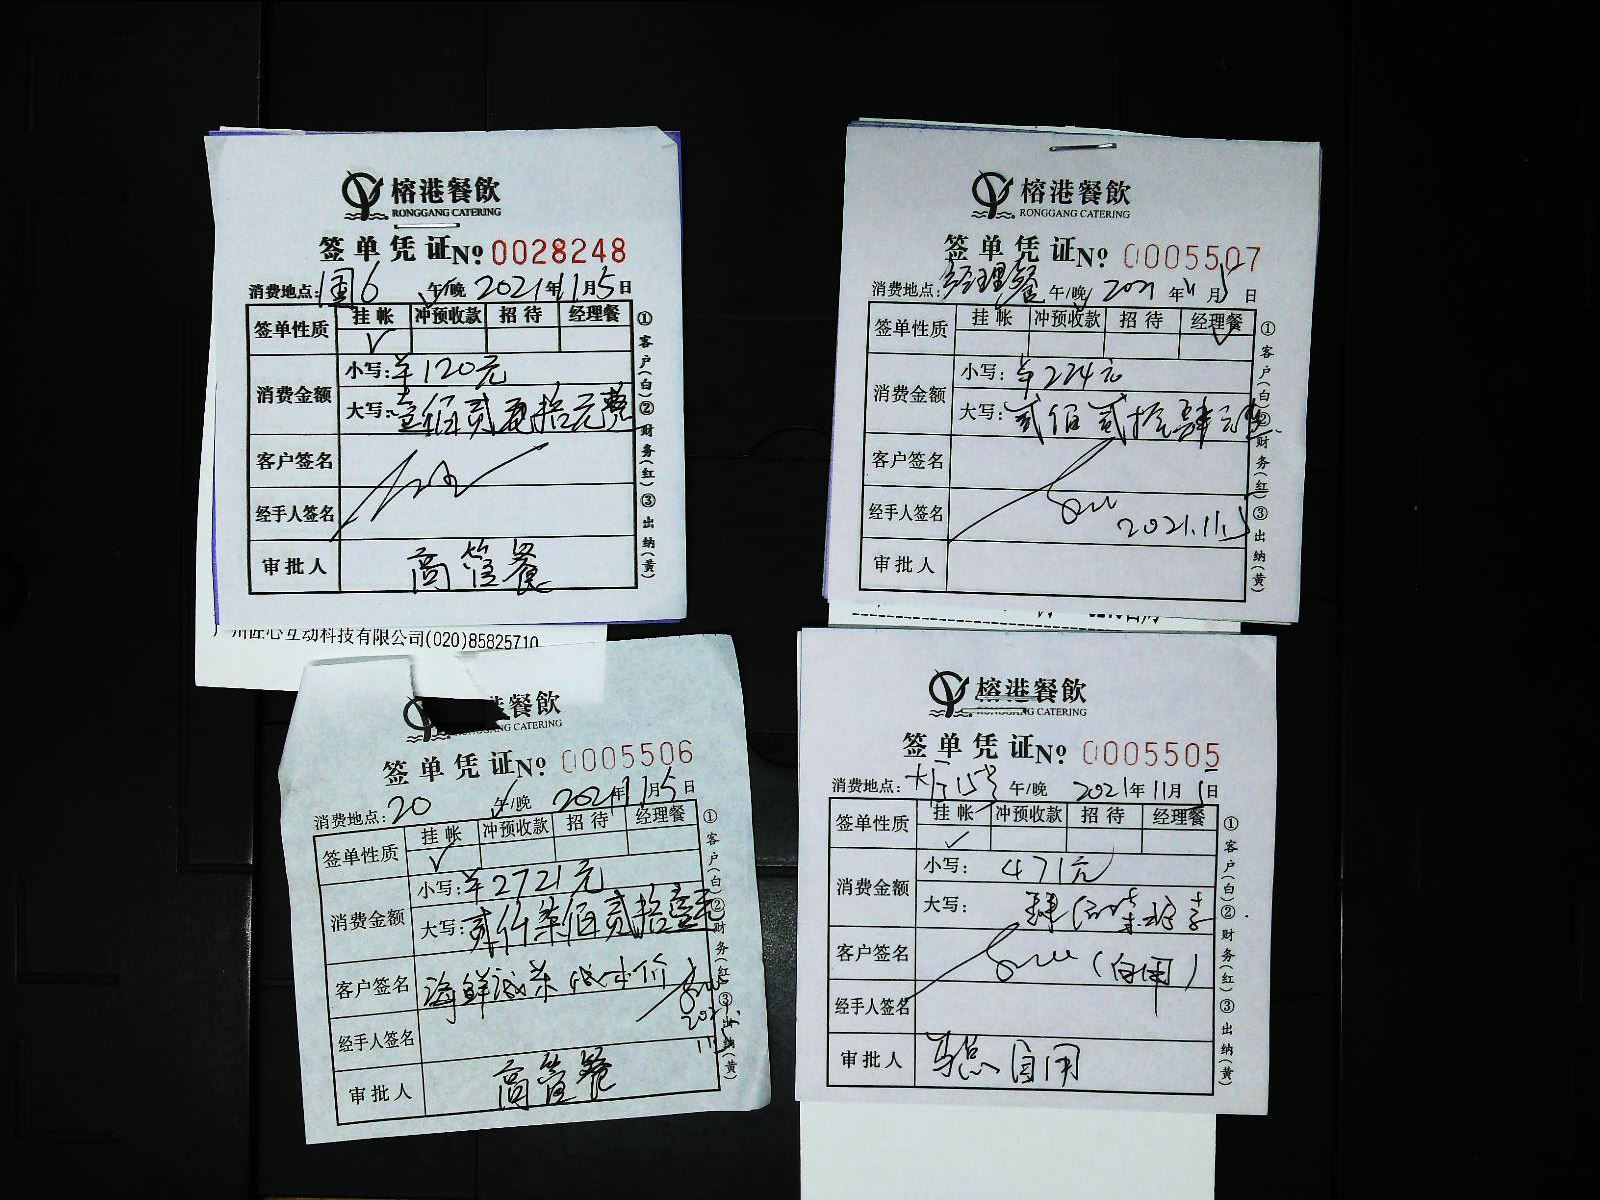 榕港餐飲
RONGGANG CATERING
签单凭证 No. 0028248
消费地点: 围6 午/晚 2021年11月5日
签单性质 挂帐 冲预收款 招待 经理餐
消费金额
小写: ¥120元
大写: 壹佰贰拾元整
客户签名
经手人签名
审批人 高管餐
①客户(白)②财务(红)③出纳(黄)
广州匠心互动科技有限公司(020)85825710
榕港餐飲
RONGGANG CATERING
签单凭证 No. 0005507
消费地点: 经理餐 午/晚 2021年11月5日
签单性质 挂帐 冲预收款 招待 经理餐
消费金额
小写: ¥224元
大写: 贰佰贰拾肆元整
客户签名
经手人签名 2021.11.5
审批人
①客户(白)②财务(红)③出纳(黄)
港餐飲
RONGGANG CATERING
签单凭证 No. 0005506
消费地点: 20 午/晚 2021年11月5日
签单性质 挂帐 冲预收款 招待 经理餐
消费金额
小写: ¥2721元
大写: 贰仟柒佰贰拾壹元
客户签名 海鲜 成本价
经手人签名
审批人 高管餐
①客户(白)②财务(红)③出纳(黄)
榕港餐飲
RONGGANG CATERING
签单凭证 No. 0005505
消费地点: 大厅15号 午/晚 2021年11月5日
签单性质 挂帐 冲预收款 招待 经理餐
消费金额
小写: 471元
大写: 肆佰柒拾壹
客户签名 (自用)
经手人签名
审批人 马总自用
①客户(白)②财务(红)③出纳(黄)